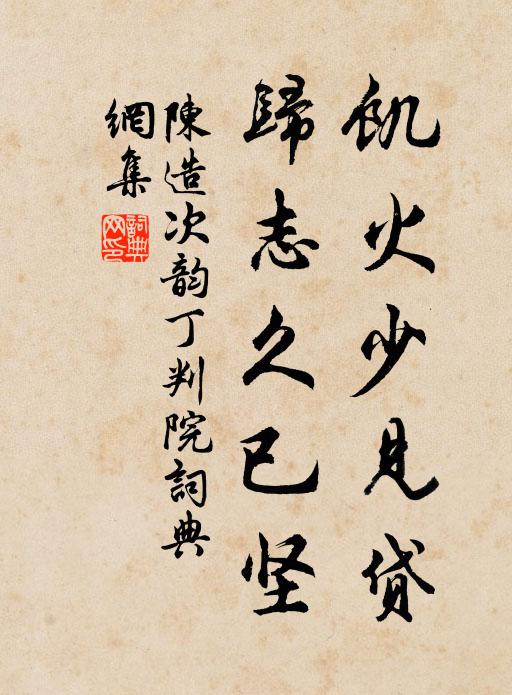 飢火少見貸
歸志久已坚
陳造次韵丁判院詞典
網集
詞典网印